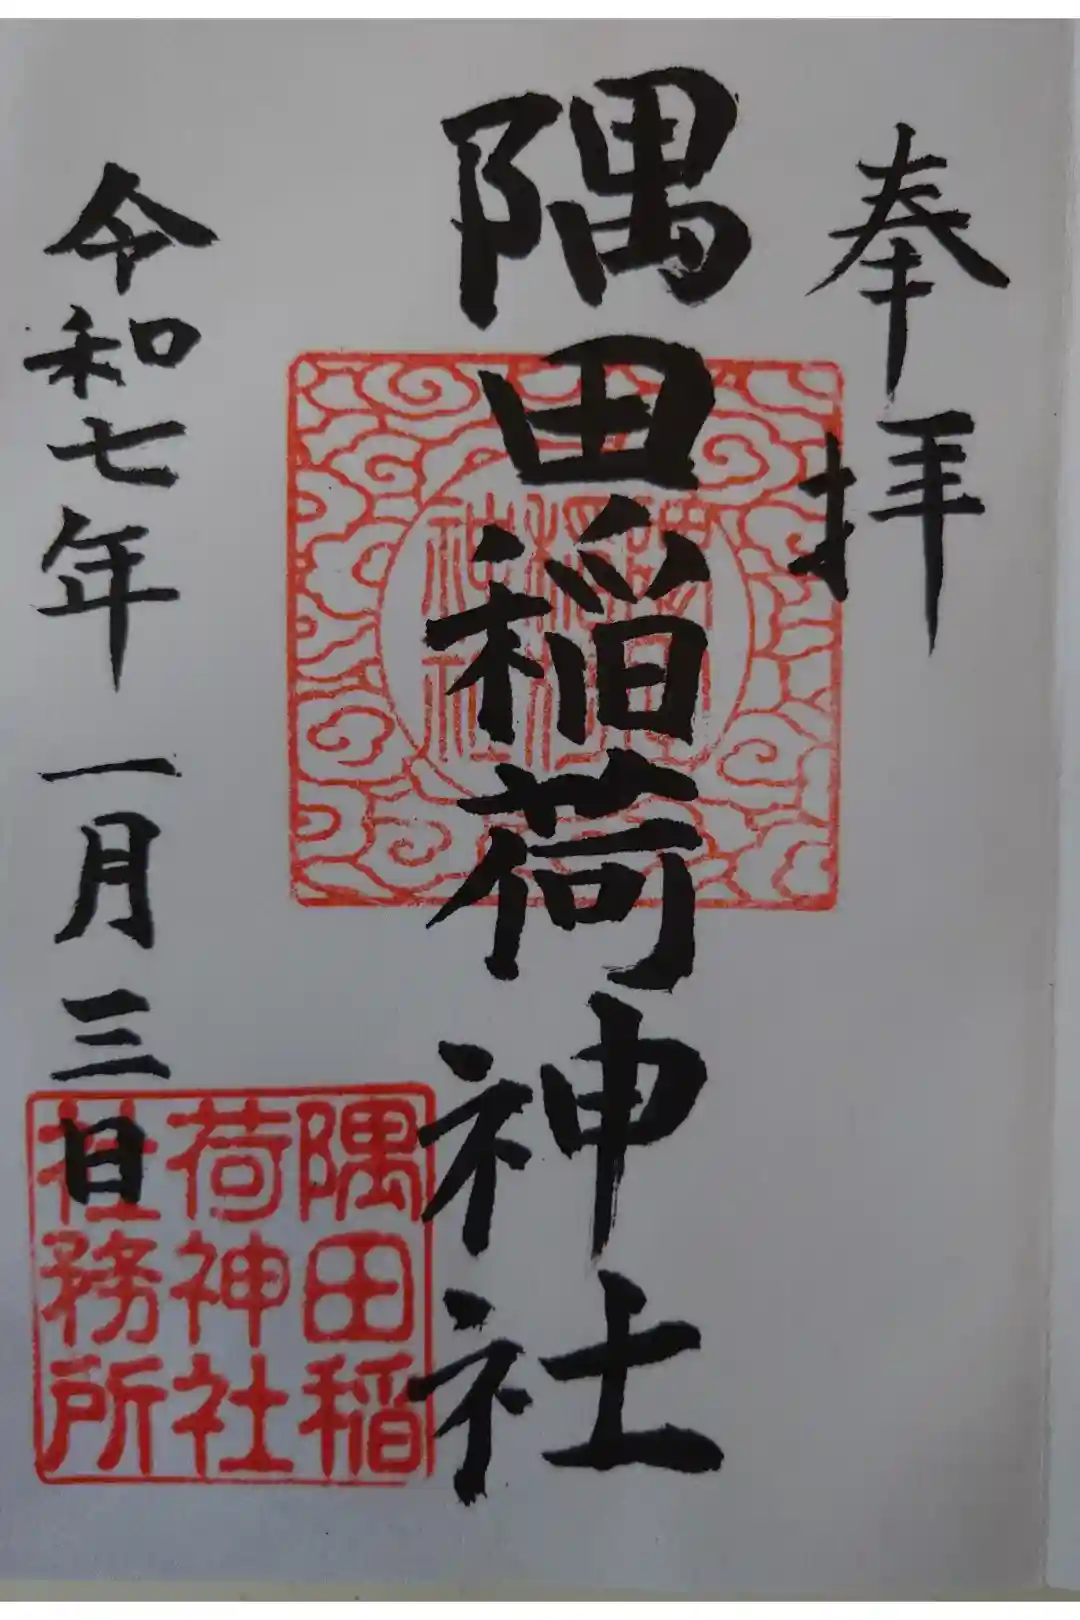 奉拝
隅田稲荷神社
令和七年一月三日
隅田稲
荷神社
社務所